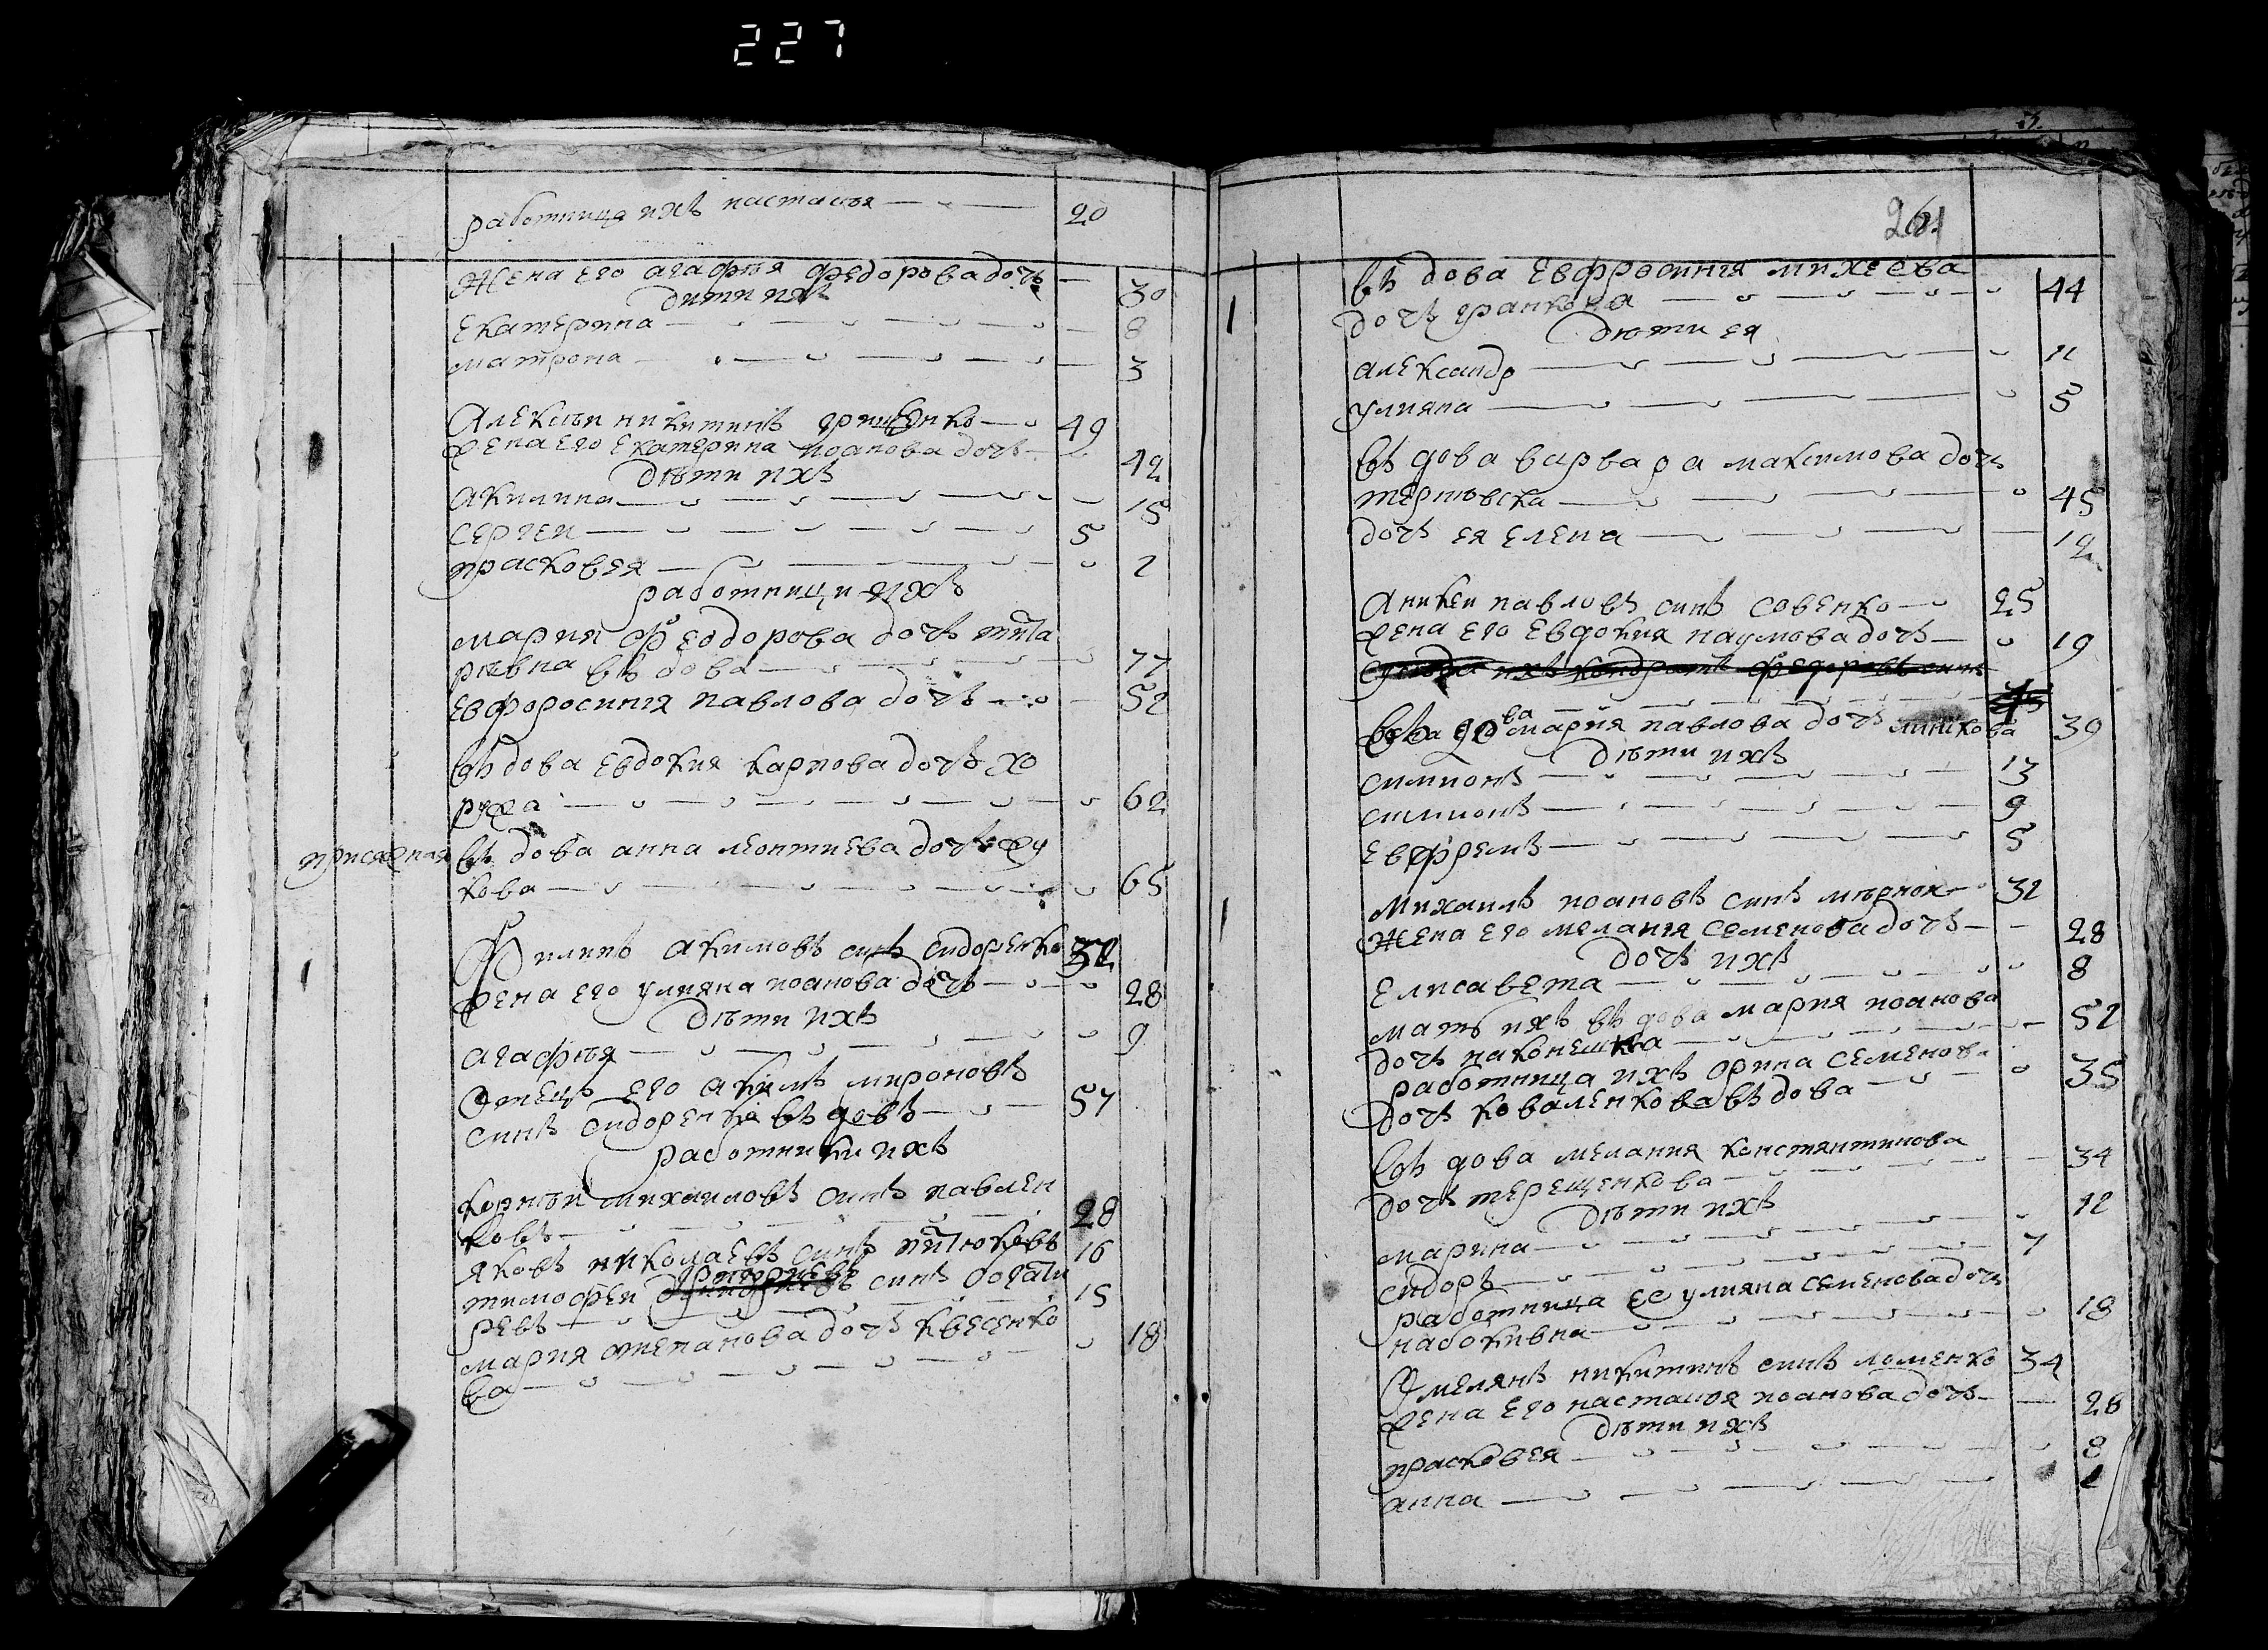 227
работница ихъ настасѣя 20
Жена его агафѣя федорова дочъ 30
дити ихъ
Екатерина 8
матрона 3
Алексѣи никитинъ грищенко 49
жена его Екатерина иоанова дочъ 42
дѣти ихъ
Акилина 15
Сергеи 5
прасковея 2
работници ихъ
мария Феодорова дочъ тита
ровна въдова 77
Евфоросиния павлова дочъ 52
въдова Евдокия карпова дочъ хо
ружа 62
присяжная въдова анна леонтиева дочъ жу
кова 65
Филипъ акимовъ синъ сидоренко 32
жена его улияна иоанова дочъ 28
дѣти ихъ
агафѣя 9
Отецъ его акимъ мироновъ
синъ сидоренко въдовъ 57
работники ихъ
корнѣи михаиловъ синъ павлен
ковъ 28
яковъ николаевъ синъ 16
григориевъ
тимофеи синъ богати
ревъ 15
мария степанова дочъ квесенко
ва 18
261
въдова Евфросиния михеева
дочъ гранкова 44
дѣти ея
александр 11
улияна 5
въдова варвара максимова дочъ
45
дочъ ея елена 12
Аникеи павловъ синъ совенко 25
жена его Евдокия наумова дочъ 19
ихъ кондратъ федоровъ синъ
въдова мария павлова дочъ 39
дѣти ихъ
симионъ 13
симионъ 9
Евфремъ 5
Михаилъ иоановъ синъ 32
Жена его мелания семенова дочъ 28
дочъ ихъ
Елисавета 8
мать ихъ въдова мария иоанова 52
дочъ
работница ихъ орина семенова 35
дочъ коваленкова въдова
въдова мелания констянтинова 34
дочъ терещенкова
дѣти ихъ
марина 12
сидоръ 7
работница ее улияна семенова дочъ
набокивна 18
Омелянъ никитинъ синъ ломенко 34
жена его настасѣя иоанова дочъ 28
дѣти ихъ
прасковея 8
анна